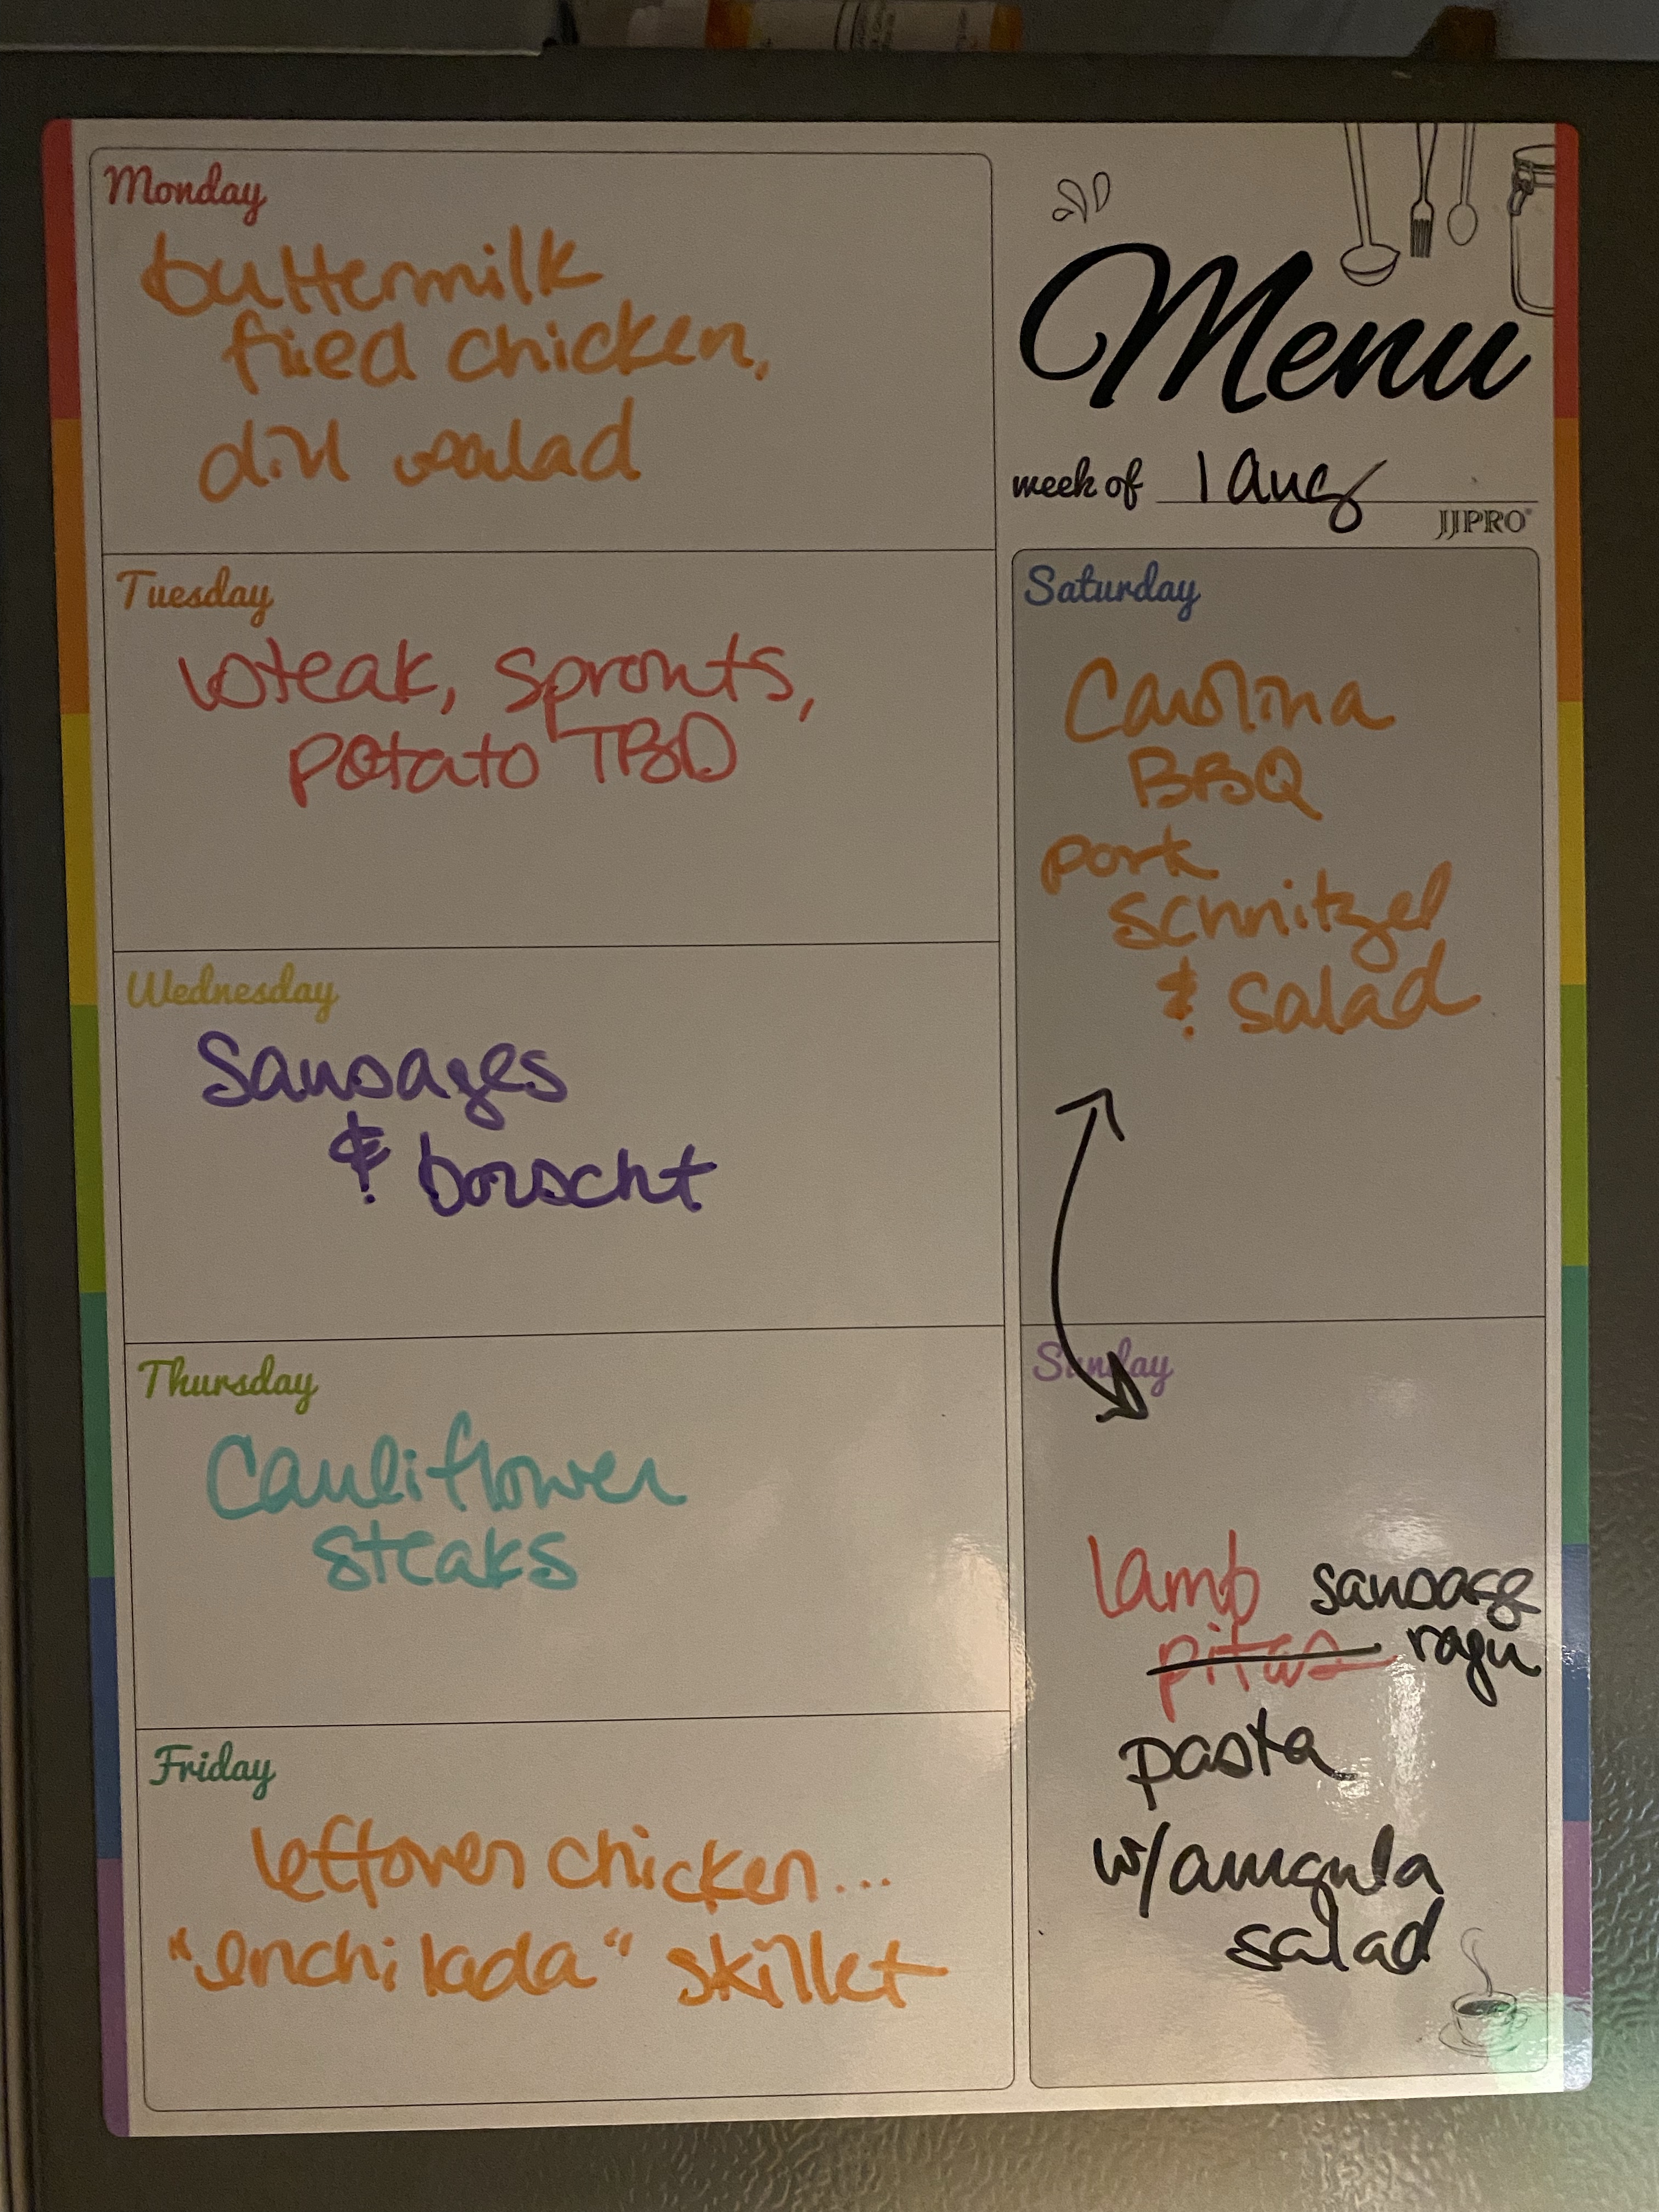 Monday
buttermilk
fried chicken,
dill salad
Tuesday
steak, sprouts,
potato TBD
Wednesday
Sausages
& borscht
Thursday
Cauliflower
steaks
Friday
leftover chicken...
"enchilada" skillet
Menu
week of 1 Aug
JJPRO®
Saturday
Carolina
BBQ
pork
schnitzel
& salad
Sunday
lamb sausage
pitas ragu
pasta
w/arugula
salad